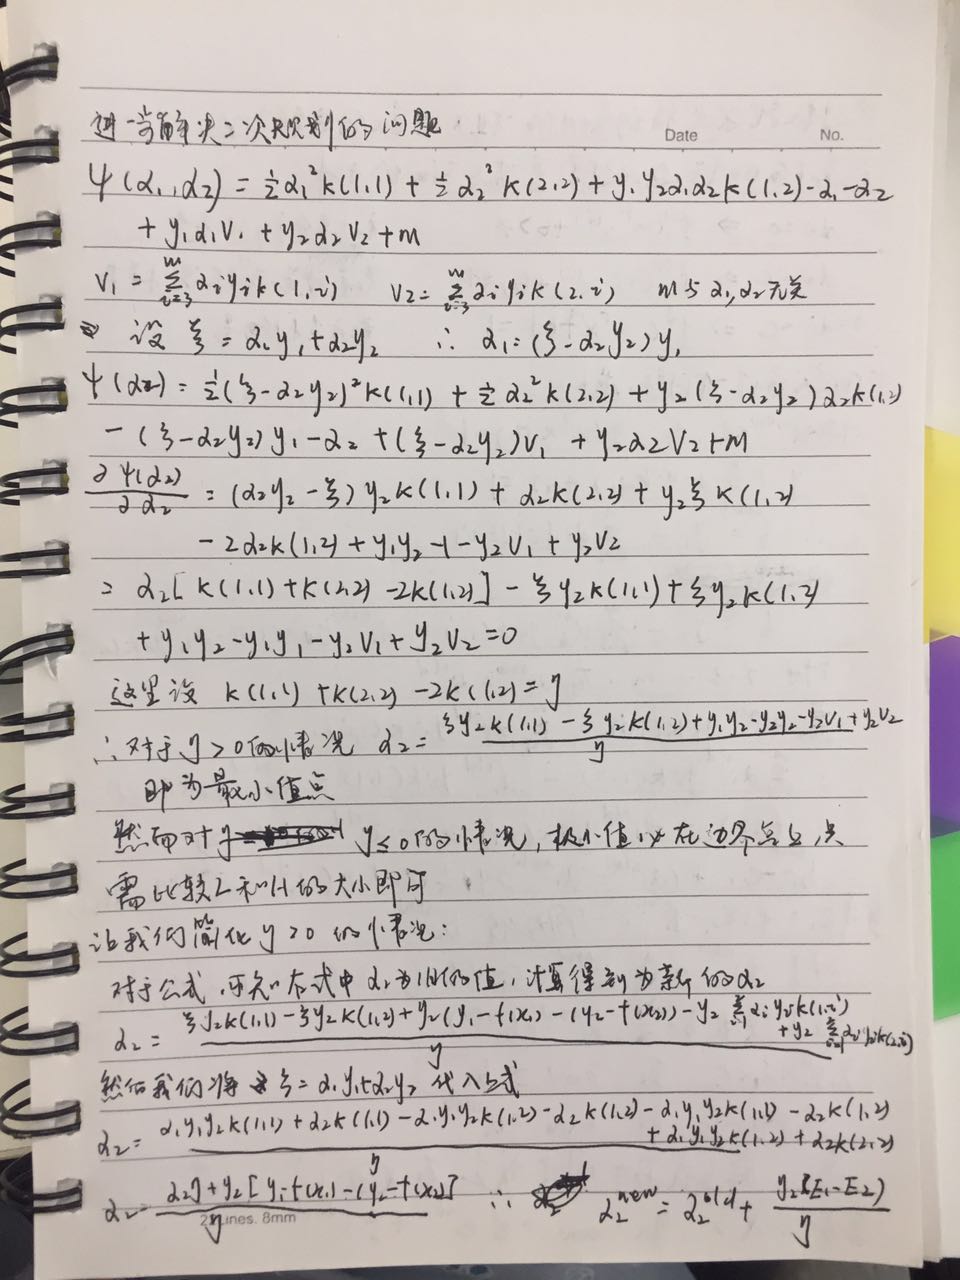 进一步解决二次规划的问题
Date No.
Ψ(α₁,α₂) = ½α₁²k(1,1) + ½α₂²k(2,2) + y₁y₂α₁α₂k(1,2) - α₁ - α₂
+ y₁α₁V₁ + y₂α₂V₂ + M
V₁ = Σᵢ₌₃ᵐ αᵢyᵢk(1,i) V₂ = Σᵢ₌₃ᵐ αᵢyᵢk(2,i) M与α₁,α₂无关
设 ξ = α₁y₁ + α₂y₂ ∴ α₁ = (ξ - α₂y₂)y₁
Ψ(α₂) = ½(ξ - α₂y₂)²k(1,1) + ½α₂²k(2,2) + y₂(ξ - α₂y₂)α₂k(1,2)
- (ξ - α₂y₂)y₁ - α₂ + (ξ - α₂y₂)V₁ + y₂α₂V₂ + M
∂Ψ(α₂)/∂α₂ = (α₂y₂ - ξ)y₂k(1,1) + α₂k(2,2) + y₂ξk(1,2)
- 2α₂k(1,2) + y₁y₂ - 1 - y₂V₁ + y₂V₂
= α₂[k(1,1) + k(2,2) - 2k(1,2)] - ξy₂k(1,1) + ξy₂k(1,2)
+ y₁y₂ - y₁y₁ - y₂V₁ + y₂V₂ = 0
这里设 k(1,1) + k(2,2) - 2k(1,2) = η
∴对于η>0的情况 α₂ = (ξy₂k(1,1) - ξy₂k(1,2) + y₁y₂ - y₂y₂ - y₂V₁ + y₂V₂)/η
即为最小值点
然而对 η≤0的情况,极小值必在边界点上,只
需比较L和H的大小即可
让我们简化η>0的情况:
对于公式,可知右式中α₂为旧的值,计算得到为新的α₂
α₂ = (ξy₂k(1,1) - ξy₂k(1,2) + y₂(y₁ - f(x₁) - (y₂ - f(x₂)) - y₂Σᵢ₌₁αᵢyᵢk(1,i) + y₂Σᵢ₌₁αᵢyᵢk(2,i))/η
然后我们将 ξ = α₁y₁ + α₂y₂ 代入上式
α₂ = (α₁y₁y₂k(1,1) + α₂k(1,1) - α₁y₁y₂k(1,2) - α₂k(1,2) - α₁y₁y₂k(1,1) - α₂k(1,2) + α₁y₁y₂k(1,2) + α₂k(2,2))/η
α₂ = (α₂η + y₂[y₁ - f(x₁) - (y₂ - f(x₂)])/η ∴ α₂ⁿᵉʷ = α₂ᵒˡᵈ + y₂(E₁ - E₂)/η
Lines. 8mm